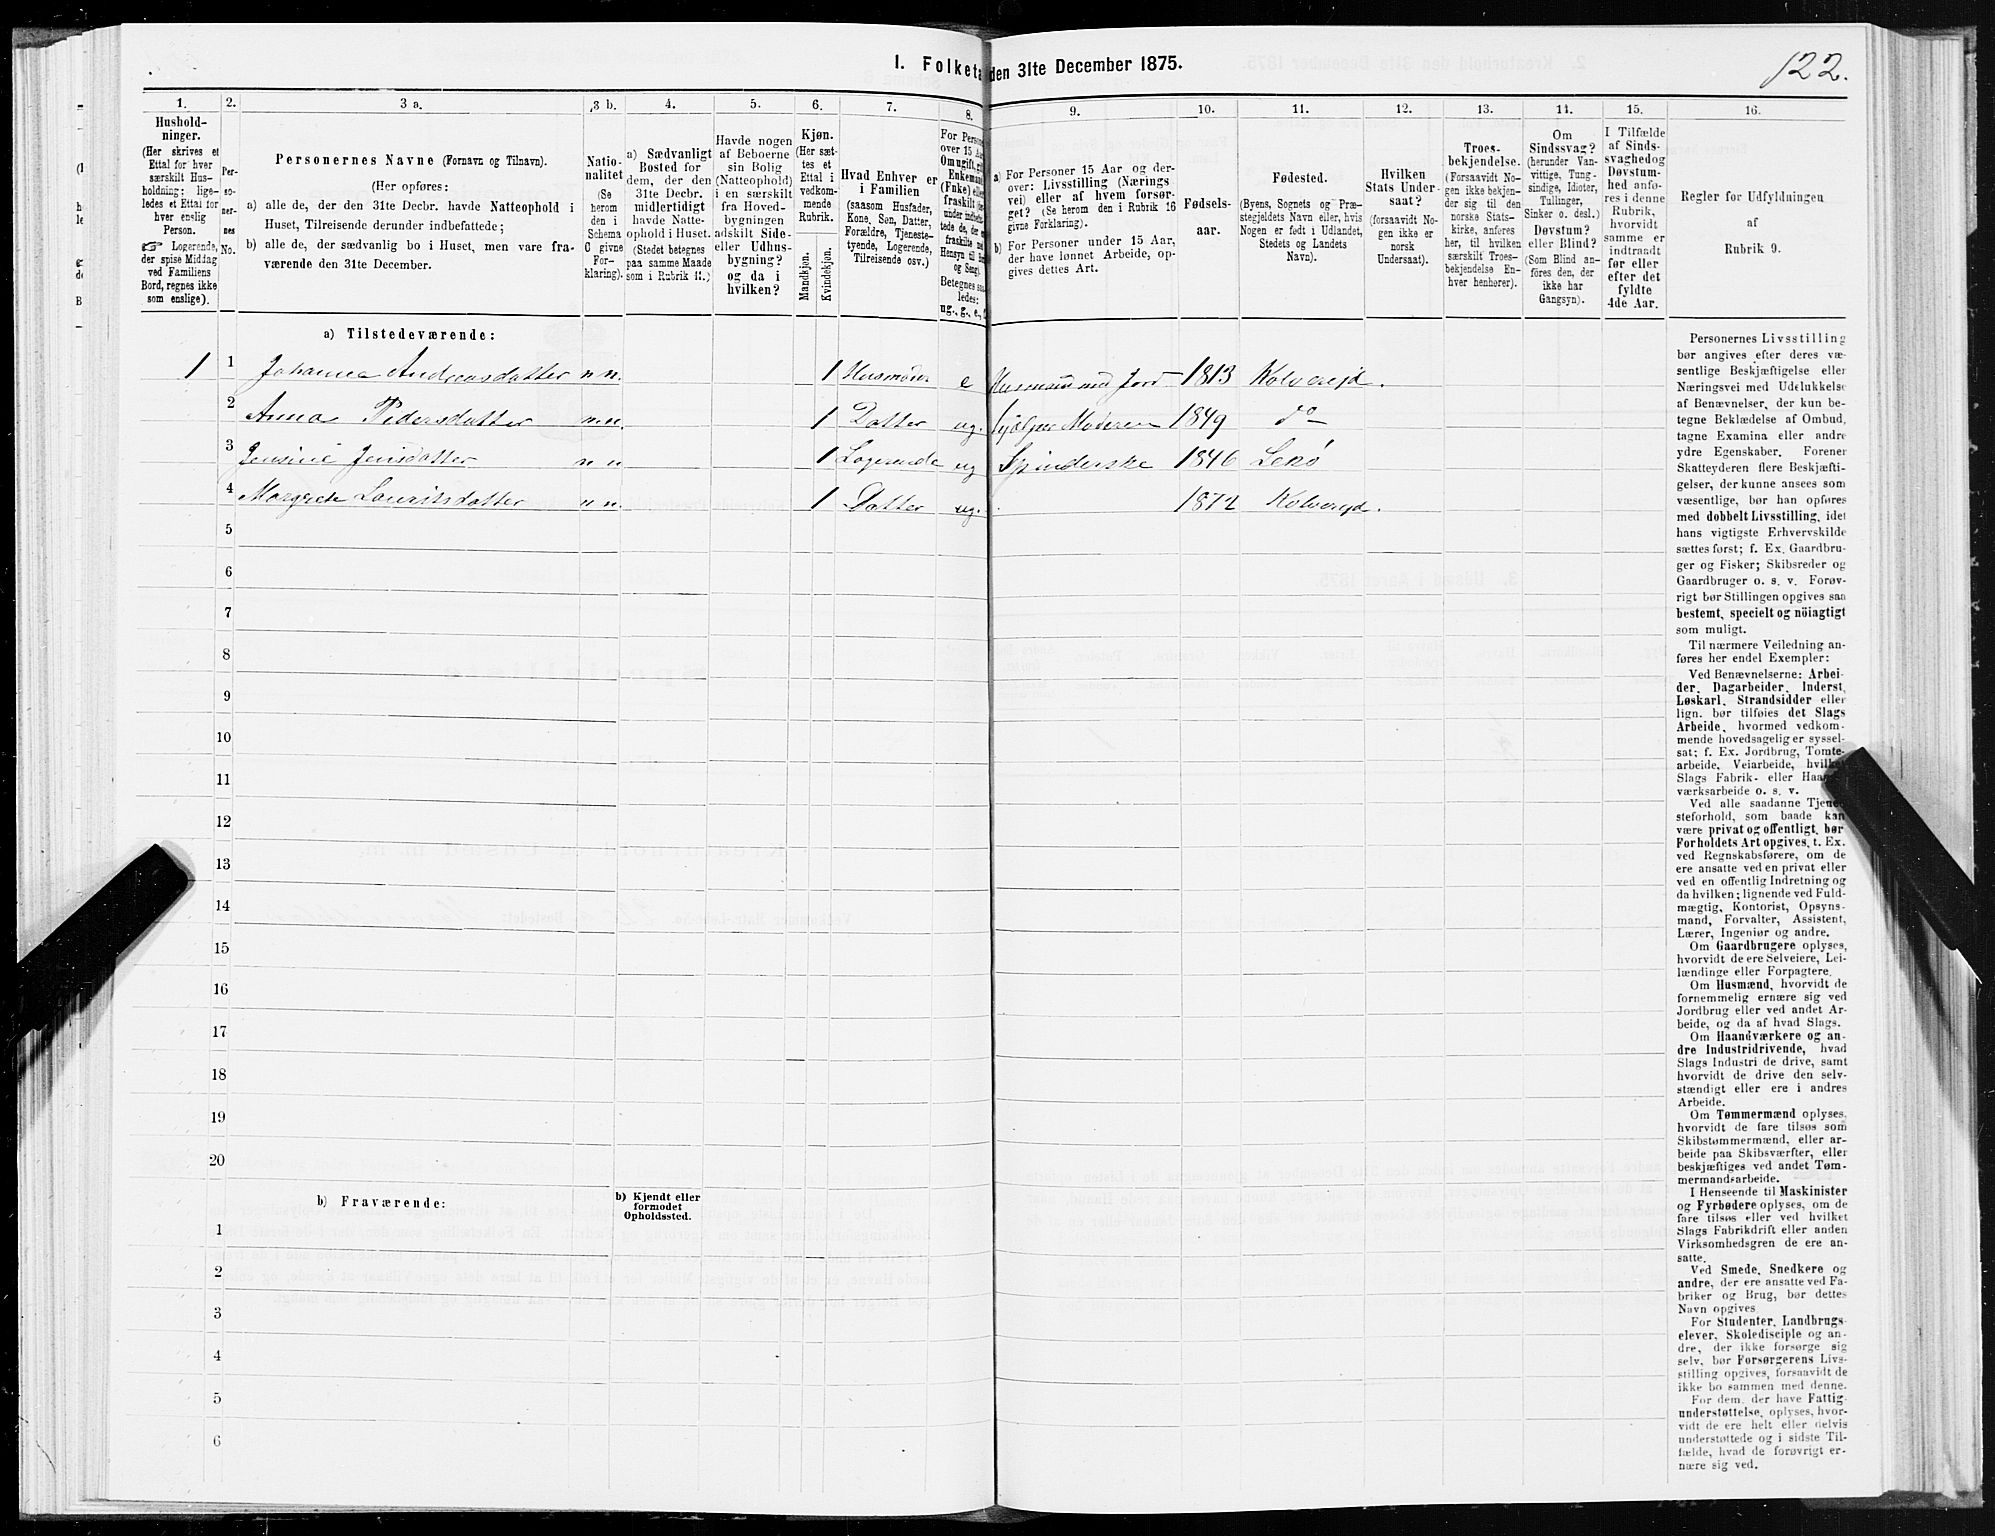 I. Folketæ
den 31te December 1875.
122.
1.
2.
3 a.
3 b.
4.
5.
6.
7.
8.
9.
10.
11.
12.
13.
14.
15.
16.
Hushold-
ninger.
(Her skrives et
Ettal for hver
særskilt Hus-
holdning; lige-
ledes et Ettal for
hver enslig
Person.
☞ Logerende,
der spise Middag
ved Familiens
Bord, regnes ikke
som enslige).
Per-
so-
ner-
nes
No.
Personernes Navne (Fornavn og Tilnavn).
(Her opføres:
a) alle de, der den 31te Decbr. havde Natteophold i
Huset, Tilreisende derunder indbefattede;
b) alle de, der sædvanlig bo i Huset, men vare fra-
værende den 31te December.
Natio-
nalitet
(Se
herom
den i
Schema
C givne
For-
klaring).
a) Sædvanligt
Bosted for
dem, der den
31te Decbr.
midlertidigt
havde Natte-
ophold i Huset.
(Stedet betegnes
paa samme Maade
som i Rubrik 11.)
Havde nogen
af Beboerne
sin Bolig
(Natteophold)
i en særskilt
fra Hoved-
bygningen
adskilt Side-
eller Udhus-
bygning?
og da i
hvilken?
Kjøn.
(Her sæt-
tes et
Ettal i
vedkom-
mende
Rubrik.
Mandkjøn.
Kvindekjøn.
Hvad Enhver er
i Familien
(saasom Husfader,
Kone, Søn, Datter,
Forældre, Tjeneste-
tyende, Logerende,
Tilreisende osv.)
For Person
over 15 Aa
Omugift, gi
Enkemand
(Enke) elle
fraskilt
under indbef
tede de, der
fraskilte m
Hensyn til Bo
og Seng).
Betegnes saa
ledes:
ug., g., e., f.
a) For Personer 15 Aar og der-
over: Livsstilling (Nærings
vei) eller af hvem forsør-
get? (Se herom den i Rubrik 16
givne Forklaring).
b) For Personer under 15 Aar,
der have lønnet Arbeide, op-
gives dettes Art.
Fødsels-
aar.
Fødested.
(Byens, Sognets og Præ-
stegjeldets Navn eller, hvis
Nogen er født i Udlandet,
Stedets og Landets
Navn).
Hvilken
Stats Under-
saat?
(forsaavidt No-
gen ikke er
norsk
Undersaat).
Troes-
bekjendelse.
(Forsaavidt No-
gen ikke bekjen-
der sig til den
norske Stats-
kirke, anføres
her, til hvilken
særskilt Troes-
bekjendelse En-
hver henhører).
Om
Sindssvag?
(herunder Van-
vittige, Tung-
sindige, Idioter,
Tullinger,
Sinker o. desl.)
Døvstum?
eller Blind?
(Som Blind an-
føres den, der
ikke har
Gangsyn).
I Tilfælde
af Sinds-
svaghed og
Døvstum-
hed anfø-
res i denne
Rubrik,
hvorvidt
samme er
indtraadt
før eller
efter det
fyldte
4de Aar.
Regler for Udfyldningen
af
Rubrik 9.
a) Tilstedeværende:
1 1 Johanna Andreasdatter n n. 1 Husmoder e Husmand med Jord 1813 Kolvereid.
2 Anna Pedersdatter n.n. 1 Datter ug. hjælper Moderen 1849 do
3 Jensine Jensdatter n n 1 Logerende ug Spinderske 1846 Lekø
4 Margrete Lauritsdatter n n. 1 Datter ug. 1872 Kolvereid.
5
6
7
8
9
10
11
12
13
14
15
16
17
18
19
20
b) Fraværende:
b) Kjendt eller
formodet
Opholdssted.
1
2
3
4
5
6
Personernes Livsstilling
bør angives efter deres væ-
sentlige Beskjæftigelse eller
Næringsvei med Udelukkelse
af Benævnelser, der kun be-
tegne Beklædelse af Ombud,
tagne Examina eller andre
ydre Egenskaber. Forener
Skatteyderen flere Beskjæfti-
gelser, der kunne ansees som
væsentlige, bør han opføres
med dobbelt Livsstilling, idet
hans vigtigste Erhvervskilde
sættes først; f. Ex. Gaardbru-
ger og Fisker; Skibsreder og
Gaardbruger o. s. v. Forøv-
rigt bør Stillingen opgives saa
bestemt, specielt og nöiagtigt
som muligt.
Til nærmere Veiledning an-
føres her endel Exempler:
Ved Benævnelserne: Arbei-
der, Dagarbeider, Inderst,
Løskarl, Strandsidder eller
lign. bør tilføies det Slags
Arbeide, hvormed vedkom-
mende hovedsagelig er syssel-
sat; f. Ex. Jordbrug, Tomte-
arbeide, Veiarbeide, hvilket
Slags Fabrik- eller Haand-
værksarbeide o. s. v.
Ved alle saadanne Tjene-
steforhold, som baade kan
være privat og offentligt, bør
Forholdets Art opgives, f. Ex.
ved Regnskabsførere, om de
ere ansatte ved en privat eller
ved en offentlig Indretning og
da hvilken; lignende ved Fuld-
mægtig, Kontorist, Opsyns-
mand, Forvalter, Assistent,
Lærer, Ingeniør og andre.
Om Gaardbrugere oplyses,
hvorvidt de ere Selveiere, Lei-
lændinge eller Forpagtere.
Om Husmænd, hvorvidt de
fornemmelig ernære sig ved
Jordbrug eller ved andet Ar-
beide, og da af hvad Slags.
Om Haandværkere og an-
dre Industridrivende, hvad
Slags Industri de drive, samt
hvorvidt de drive den selv-
stændigt eller ere i andres
Arbeide.
Om Tømmermænd oplyses,
hvorvidt de fare tilsøs som
Skibstømmermænd, eller ar-
beide paa Skibsværfter, eller
beskjæftiges ved andet Tøm-
mermandsarbeide.
I Henseende til Maskinister
og Fyrbødere oplyses, om de
fare tilsøs eller ved hvilket
Slags Fabrikdrift eller anden
Virksomhedsgren de ere an-
satte.
Ved Smede, Snedkere og
andre, der ere ansatte ved Fa-
briker og Brug, bør dettes
Navn opgives
For Studenter, Landbrugs-
elever, Skoledisciple og an-
dre, der ikke forsørge sig
selv, bør Forsørgerens Livs-
stilling opgives, forsaavidt de
ikke bo sammen med denne.
For dem, der have Fattig-
understøttelse, oplyses, hvor-
vidt de ere helt eller delvis
understøttede og i sidste Til-
fælde, hvad de forøvrigt er-
nære sig ved.